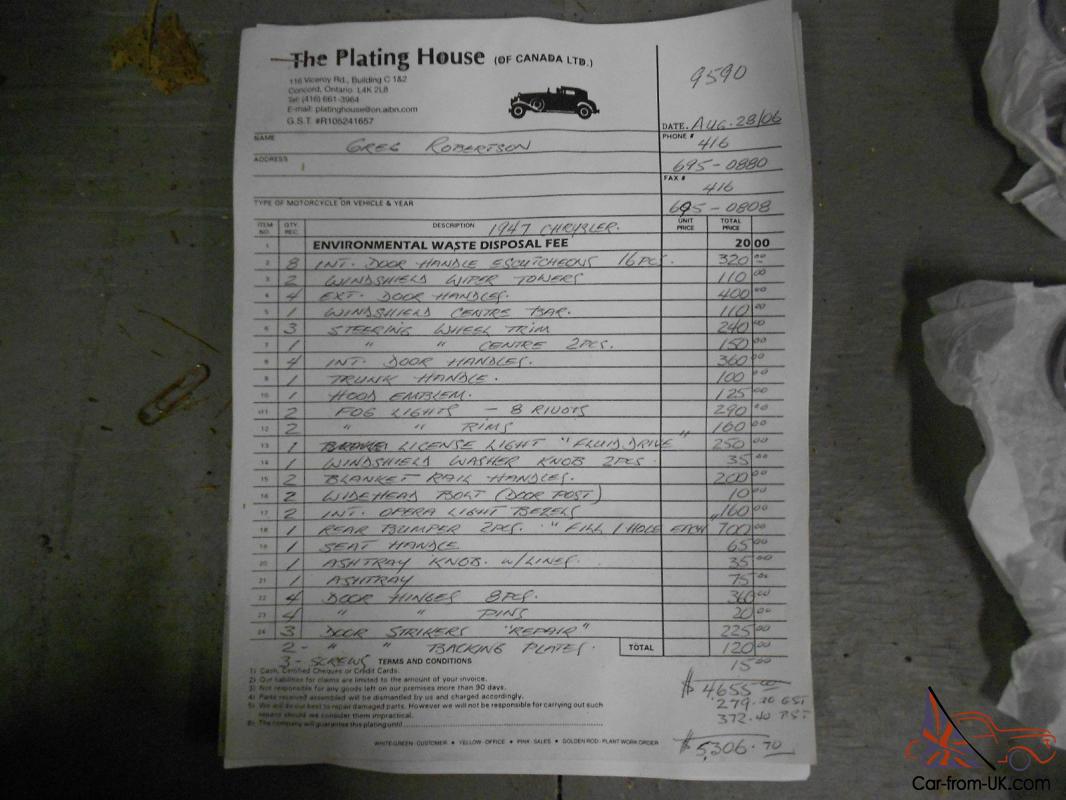 The Plating House (OF CANADA LTD.)
116 Viceroy Rd., Building C 1&2
Concord, Ontario L4K 2L8
Tel: (416) 661-3964
E-mail: platinghouse@on.aibn.com
G.S.T. #R105241657
9590
DATE. AUG. 28/06
NAME GREG ROBERTSON
PHONE # 416
695-0880
ADDRESS
FAX # 416
695-0808
TYPE OF MOTORCYCLE OR VEHICLE & YEAR
ITEM NO. QTY. REC. DESCRIPTION 1947 CHRYSLER. UNIT PRICE TOTAL PRICE
1 ENVIRONMENTAL WASTE DISPOSAL FEE 20 00
2 8 INT. DOOR HANDLE ESCUTCHEONS 16 PCS. 320 00
3 2 WINDSHIELD WIPER TOWERS 110 00
4 4 EXT. DOOR HANDLES. 400 00
5 1 WINDSHIELD CENTRE BAR. 110 00
6 3 STEERING WHEEL TRIM 240 00
7 1 " " CENTRE 2PCS. 150 00
8 4 INT. DOOR HANDLES. 360 00
9 1 TRUNK HANDLE. 100 00
10 1 HOOD EMBLEM. 125 00
11 2 FOG LIGHTS - 8 RIVOTS 290 00
12 2 " " RIMS 160 00
13 1 LICENSE LIGHT "FLUID DRIVE" 250 00
14 1 WINDSHIELD WASHER KNOB 2PCS. 35 00
15 2 BLANKET RAIL HANDLES. 200 00
16 2 WIDEHEAD BOLT (DOOR POST) 10 00
17 2 INT. OPERA LIGHT BEZELS 160 00
18 1 REAR BUMPER 2PCS. "FILL 1 HOLE EACH" 700 00
19 1 SEAT HANDLE 65 00
20 1 ASHTRAY KNOB. W/LINES. 35 00
21 1 ASHTRAY 75 00
22 4 DOOR HINGES 8PCS. 360 00
23 4 " " PINS 20 00
24 3 DOOR STRIKERS "REPAIR" 225 00
2 - " " BACKING PLATES. TOTAL 120 00
3 - SCREWS 15 00
TERMS AND CONDITIONS
1) Cash, Certified Cheques or Credit Cards.
2) Our liabilities for claims are limited to the amount of your invoice.
3) Not responsible for any goods left on our premises more than 90 days.
4) Parts received assembled will be dismantled by us and charged accordingly.
5) We will do our best to repair damaged parts. However we will not be responsible for carrying out such
repairs should we consider them impractical.
6) The company will guarantee this plating until
$4,655.00
279.30 GST
372.40 PST
$5,306.70
WHITE-GREEN - CUSTOMER • YELLOW - OFFICE • PINK - SALES • GOLDEN ROD - PLANT WORK ORDER
Car-from-UK.com